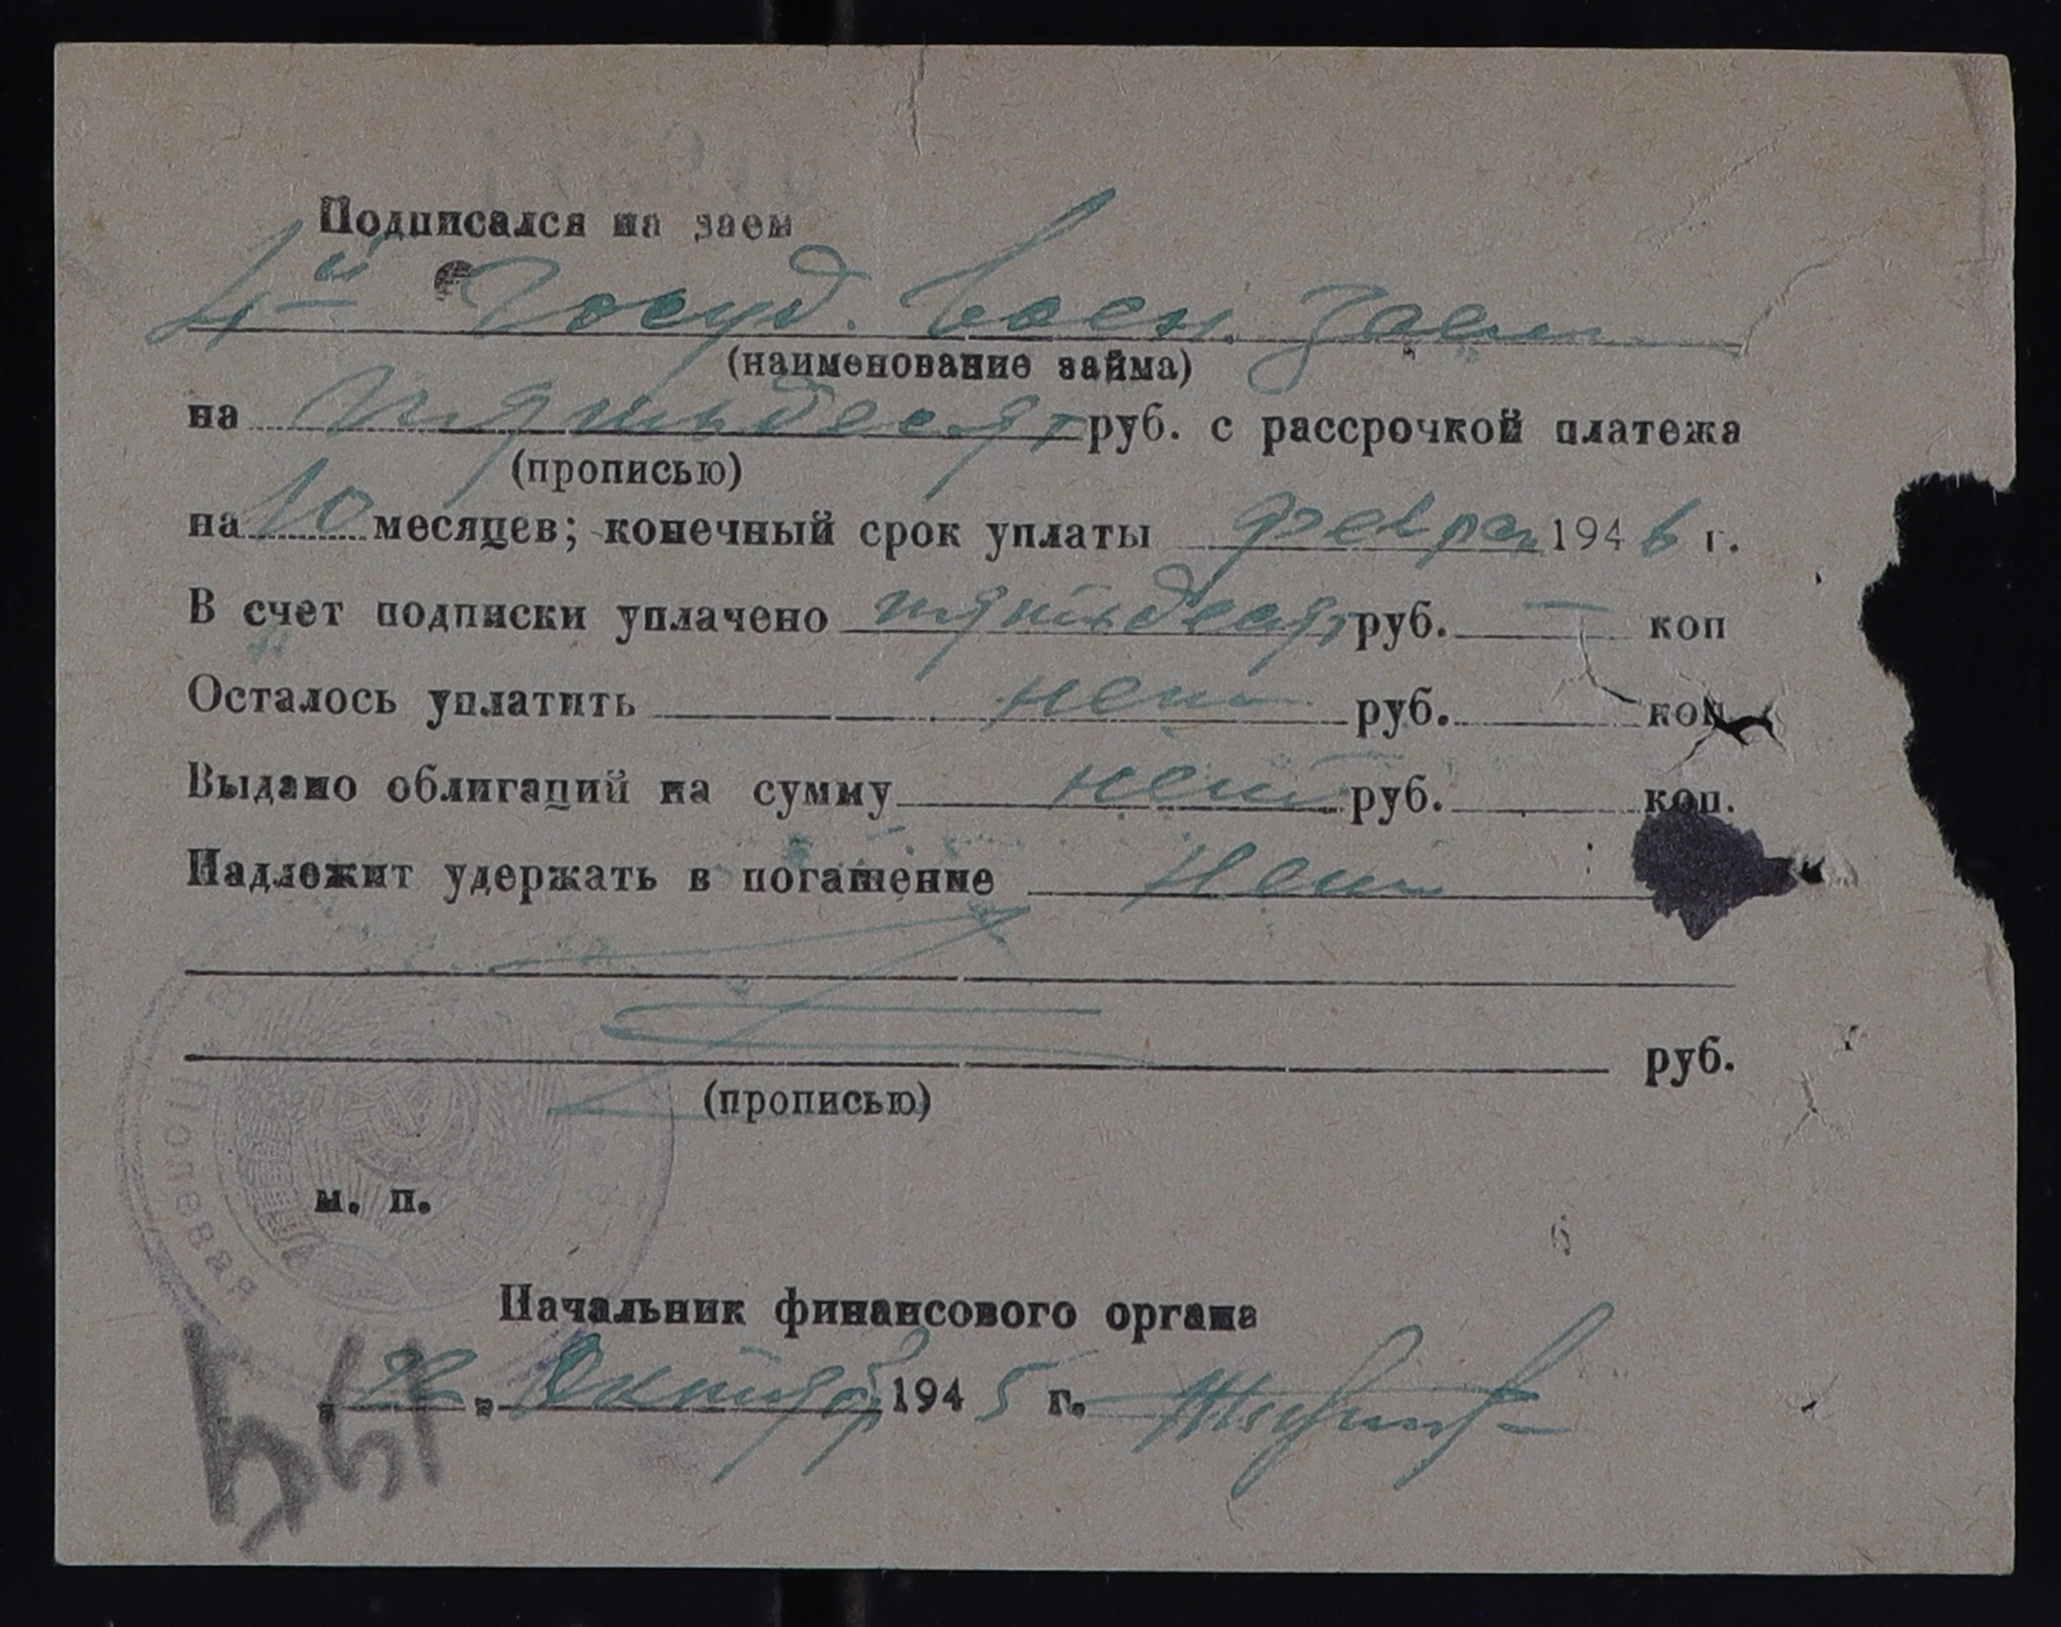 Подписался на заем
4й Госуд. Воен. Заем
(наименование займа)
на пятьдесят руб. с рассрочкой платежа
(прописью)
на 10 месяцев; конечный срок уплаты феврал 1946 г.
В счет подписки уплачено пятьдесят руб. — коп
Осталось уплатить нет руб. коп
Выдано облигаций на сумму нет руб. коп.
Надлежит удержать в погашение нет
руб.
(прописью)
Полевая
м. п.
Начальник финансового органа
"22" Октября 1945 г.
194